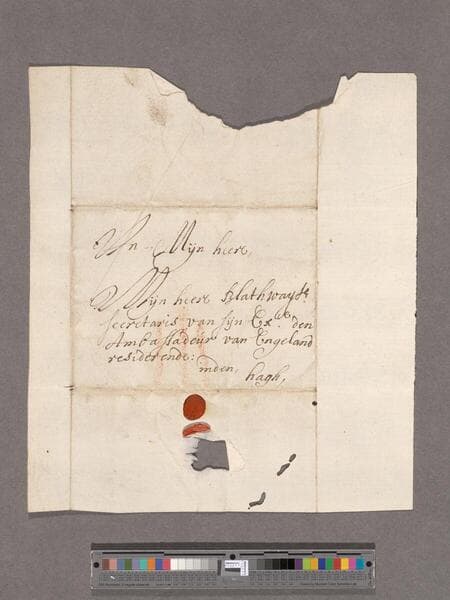 Mijn heer,
Mijn heer Blathwayt
Secretaris van sijn Excie den
Ambassadeur van Engeland
residerende:
inden, hagh,